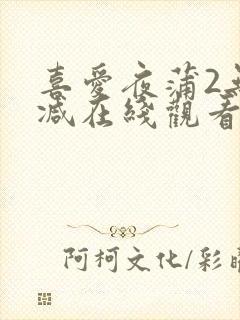 喜愛夜蒲2
减在綫觀看
阿柯文化/彩